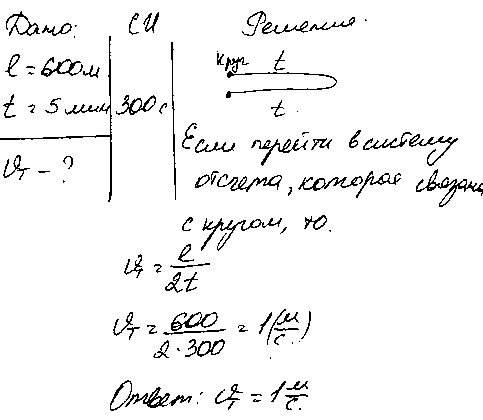 Дано:
СИ
Решение.
l = 600м
t = 5 мин
300с
vт - ?
Круг t
t
Если перейти в систему
отсчета, которая связана
с кругом, то.
vт = l/2t
vт = 600/2·300 = 1(м/с)
Ответ: vт = 1 м/с.